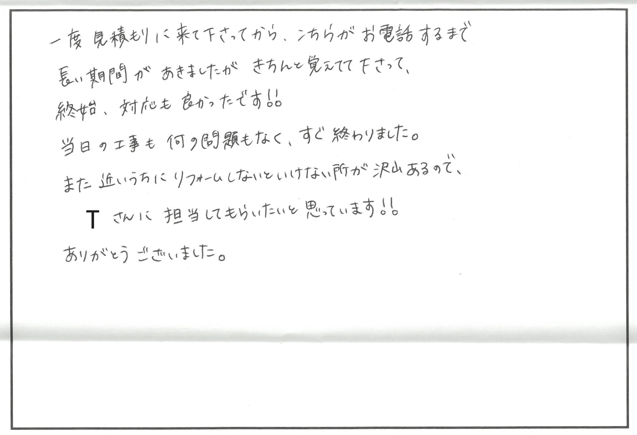 一度見積もりに来て下さってから、こちらがお電話するまで
長い期間があきましたがきちんと覚えてて下さって、
終始、対応も良かったです!!
当日の工事も何の問題もなく、すぐ終わりました。
また近いうちにリフォームしないといけない所が沢山あるので、
Tさんに担当してもらいたいと思っています!!
ありがとうございました。